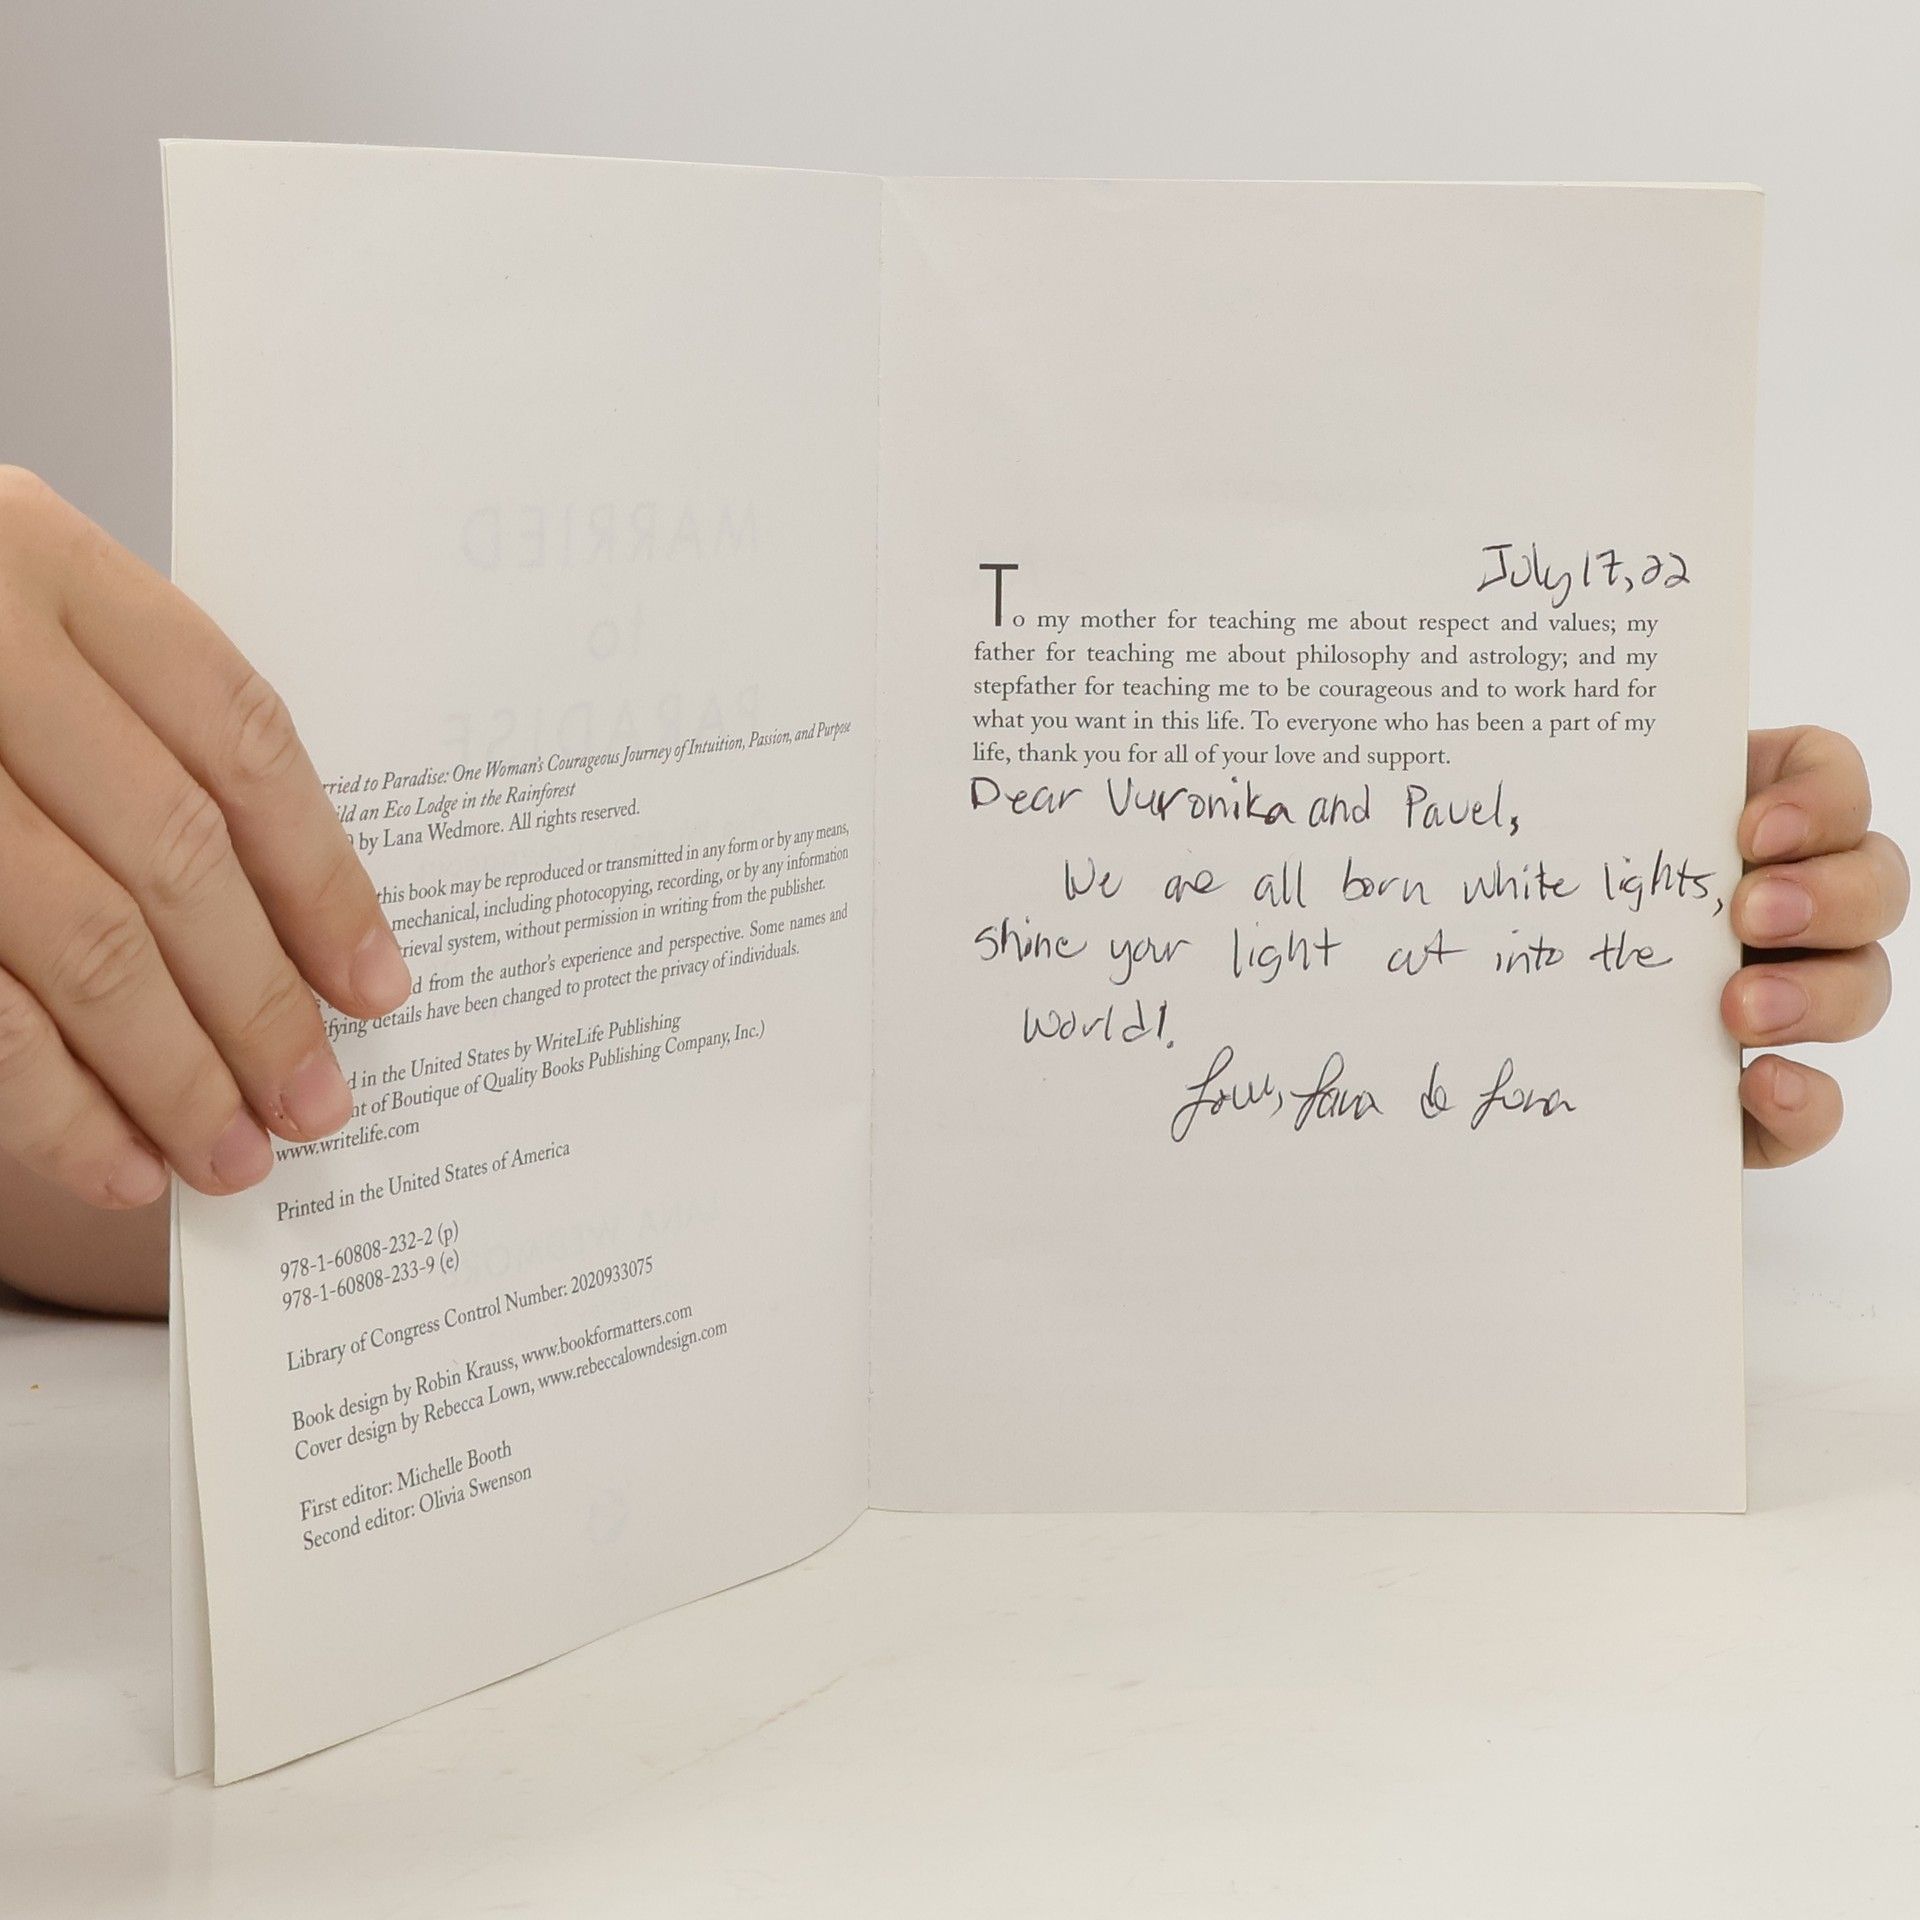 rried to Paradise: One Woman's Courageous Journey of Intuition, Passion, and Purpose
ild an Eco Lodge in the Rainforest
by Lana Wedmore. All rights reserved.
this book may be reproduced or transmitted in any form or by any means,
mechanical, including photocopying, recording, or by any information
rieval system, without permission in writing from the publisher.
d from the author's experience and perspective. Some names and
ifying details have been changed to protect the privacy of individuals.
d in the United States by WriteLife Publishing
nt of Boutique of Quality Books Publishing Company, Inc.)
www.writelife.com
Printed in the United States of America
978-1-60808-232-2 (p)
978-1-60808-233-9 (e)
Library of Congress Control Number: 2020933075
Book design by Robin Krauss, www.bookformatters.com
Cover design by Rebecca Lown, www.rebeccalowndesign.com
First editor: Michelle Booth
Second editor: Olivia Swenson
July 17, 22
To my mother for teaching me about respect and values; my
father for teaching me about philosophy and astrology; and my
stepfather for teaching me to be courageous and to work hard for
what you want in this life. To everyone who has been a part of my
life, thank you for all of your love and support.
Dear Vuronika and Pavel,
We are all born white lights,
shine your light out into the
World!
Love, Lana de Lona